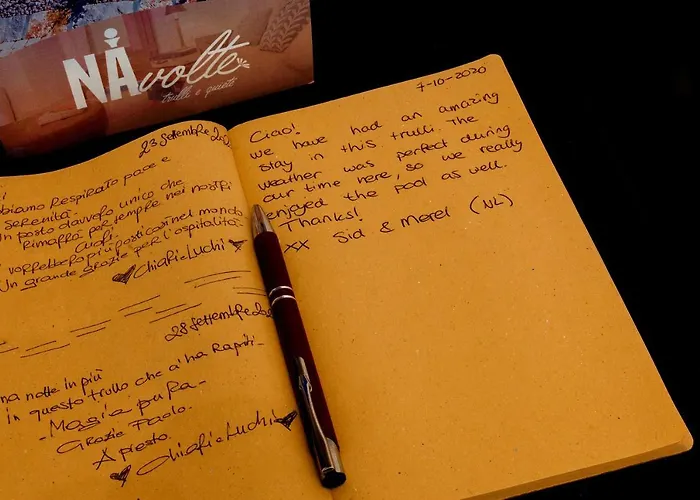 NAvolte
trulli e quieti
23 Settembre 202
biamo Respirato pace e
serenità.
n posto davvero unico che
Rimarrà per sempre nei nostri
cuori.
vorrebbero più posti così nel mondo
Un grande grazie per l'ospitalità
Chiafi e Luchi
28 Settembre 202
na notte in più
in questo trullo che ci ha Rapiti-
- Magia pura -
Grazie Paolo.
A presto.
Chiafi e Luchi
7-10-2020
Ciao!
we have had an amazing
stay in this trulli. The
weather was perfect during
our time here, so we really
enjoyed the pool as well.
Thanks!
xx Sid & Merel (NL)